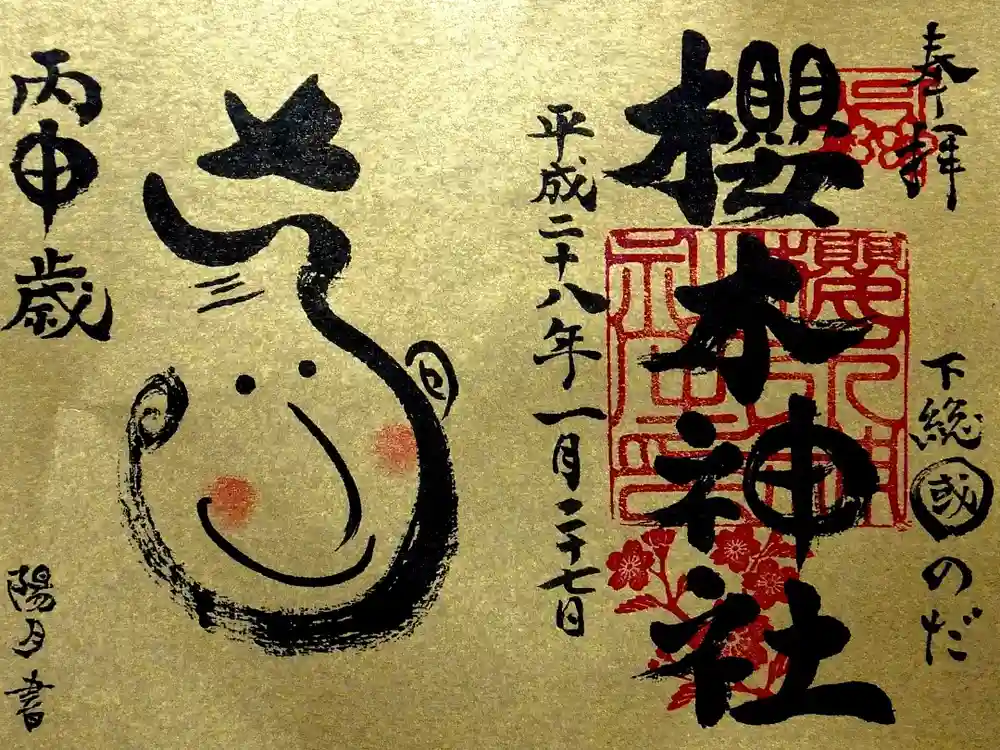 奉拝
下総国のだ
櫻木神社
平成二十八年一月二十七日
丙申歳
陽月書